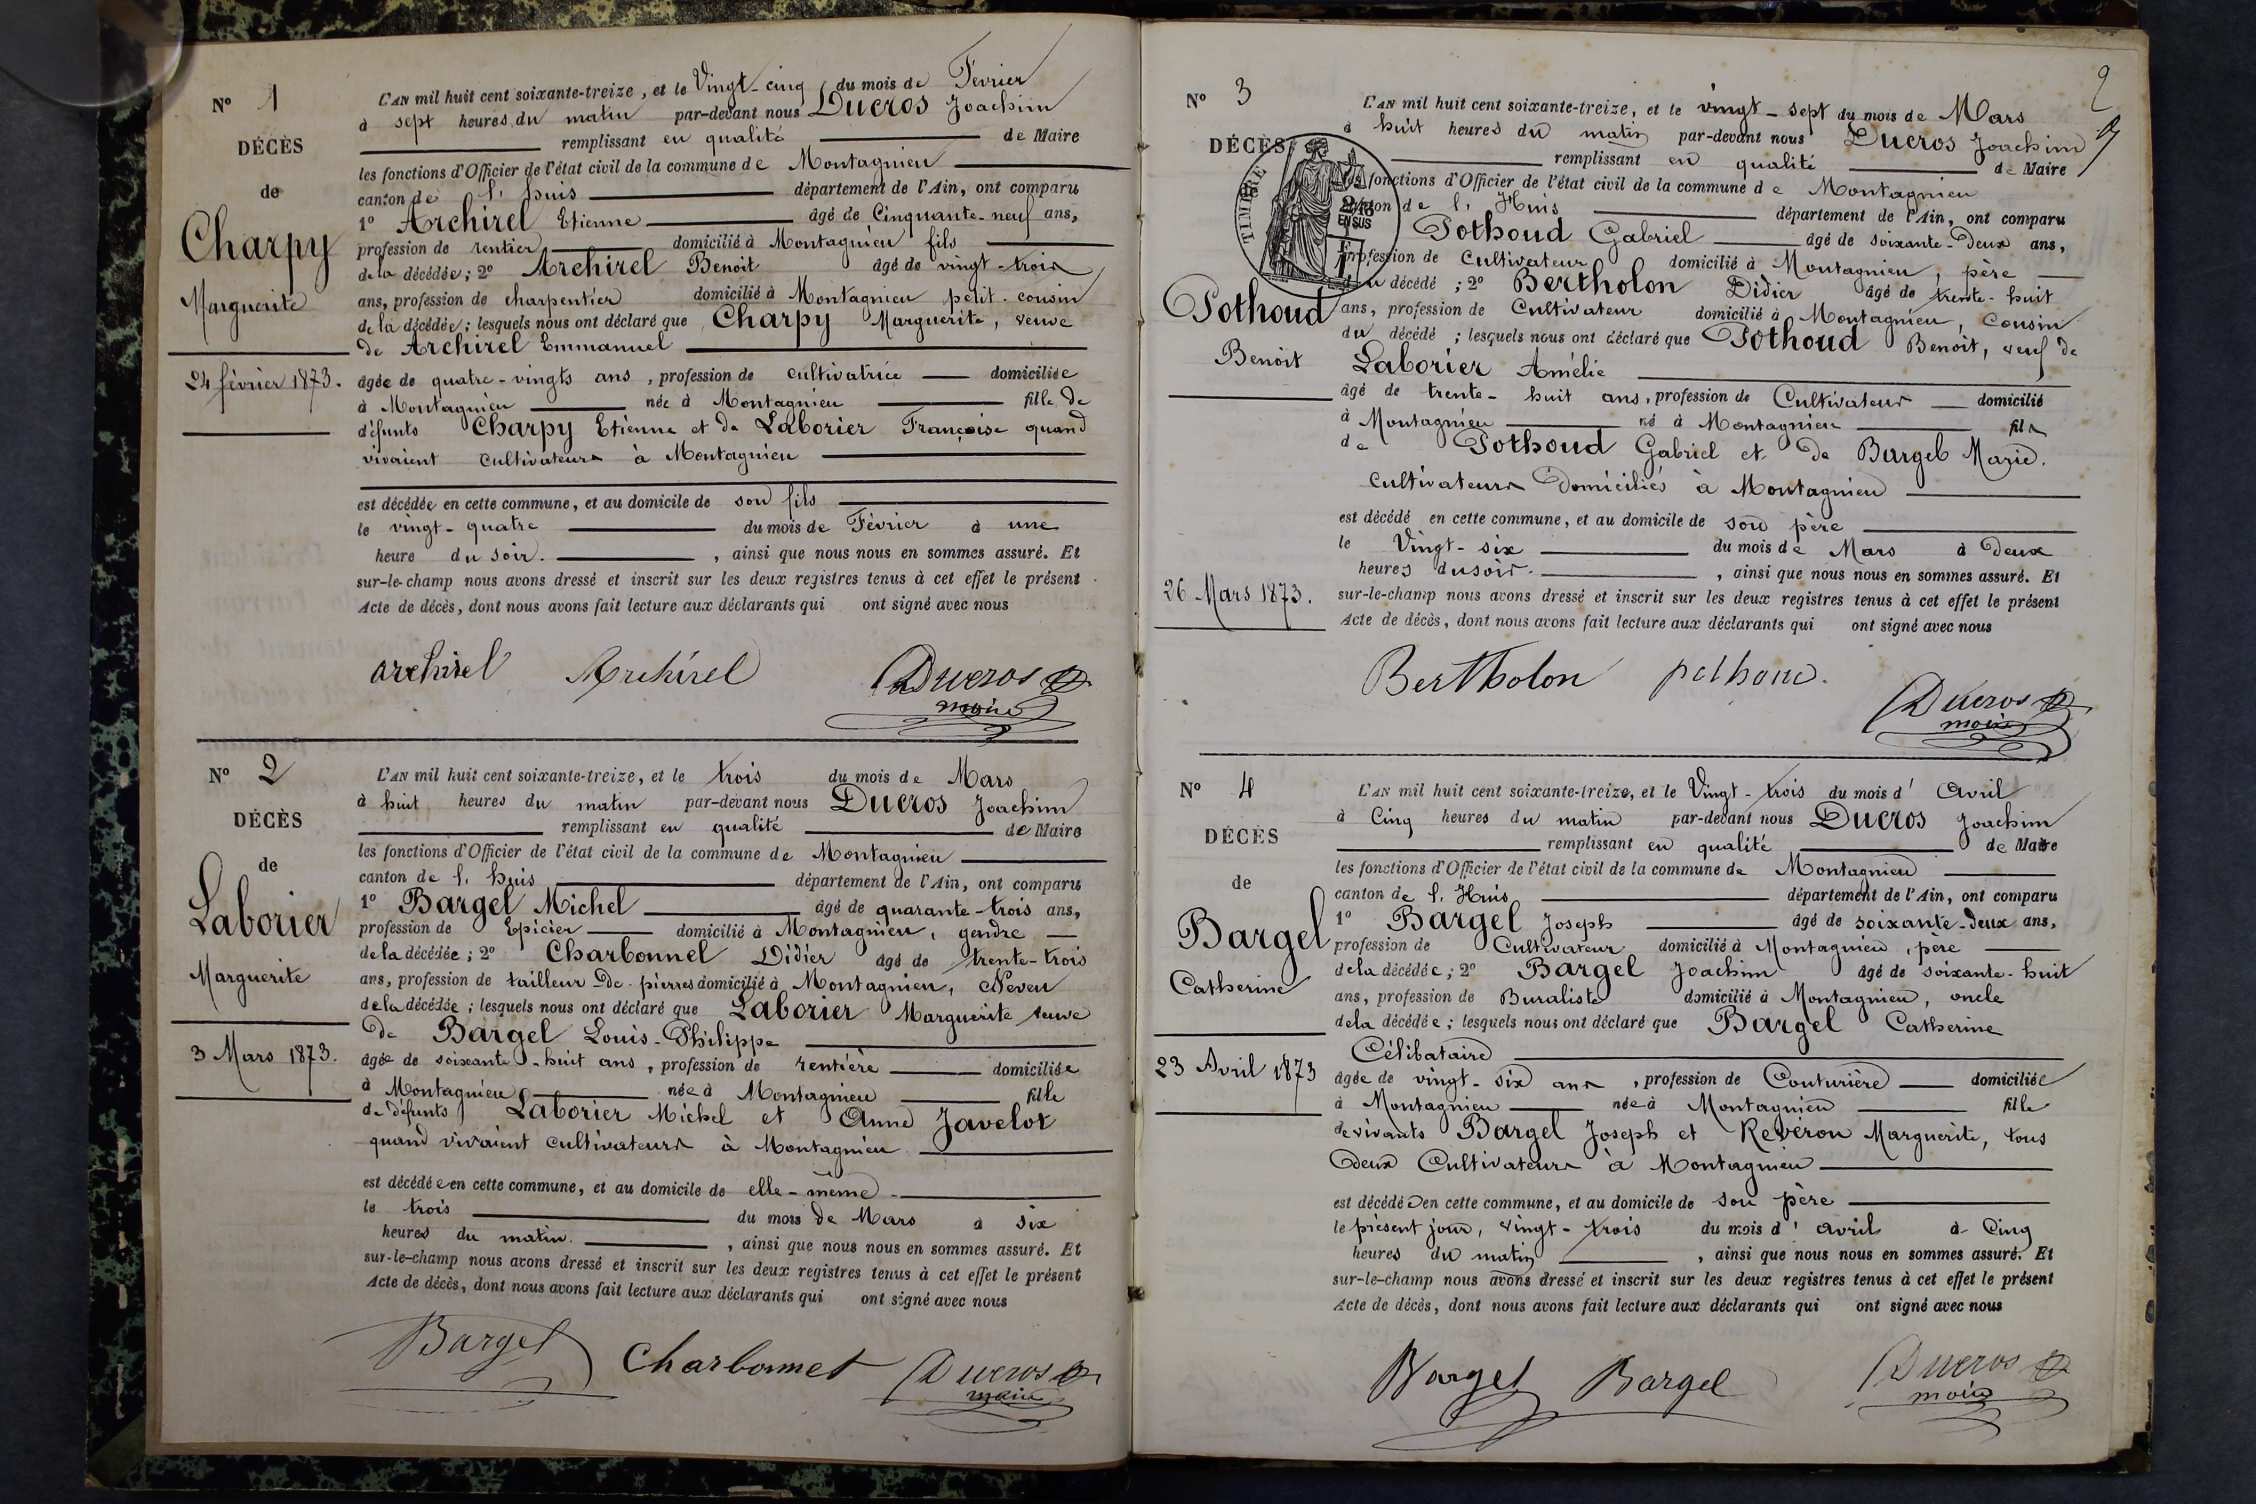 N° 1
DÉCÈS
de
Charpy
Marguerite
24 février 1873.
L'AN mil huit cent soixante-treize, et le Vingt-cinq du mois de Février
à sept heures du matin par-devant nous Ducros Joachim
remplissant en qualité de Maire
les fonctions d'Officier de l'état civil de la commune de Montagnieu
canton de l'huis département de l'Ain, ont comparu
1° Archirel Etienne âgé de Cinquante-neuf ans,
profession de rentier domicilié à Montagnieu fils
de la décédée; 2° Archirel Benoit âgé de vingt-trois
ans, profession de charpentier domicilié à Montagnieu petit-cousin
de la décédée; lesquels nous ont déclaré que Charpy Marguerite, veuve
de Archirel Emmanuel
âgée de quatre-vingts ans, profession de cultivatrice domiciliée
à Montagnieu née à Montagnieu fille de
défunts Charpy Etienne et de Laborier Françoise quand
vivaient cultivateurs à Montagnieu
est décédée en cette commune, et au domicile de son fils
le vingt-quatre du mois de Février à une
heure du soir. , ainsi que nous nous en sommes assuré. Et
sur-le-champ nous avons dressé et inscrit sur les deux registres tenus à cet effet le présent
Acte de décès, dont nous avons fait lecture aux déclarants qui ont signé avec nous
archirel Archirel Ducros
maire
N° 2
DÉCÈS
de
Laborier
Marguerite
3 Mars 1873.
L'AN mil huit cent soixante-treize, et le trois du mois de Mars
à huit heures du matin par-devant nous Ducros Joachim
remplissant en qualité de Maire
les fonctions d'Officier de l'état civil de la commune de Montagnieu
canton de l'huis département de l'Ain, ont comparu
1° Bargel Michel âgé de quarante-trois ans,
profession de Epicier domicilié à Montagnieu, gendre
de la décédée; 2° Charbonnel Didier âgé de trente-trois
ans, profession de tailleur de pierres domicilié à Montagnieu, Neveu
de la décédée; lesquels nous ont déclaré que Laborier Marguerite veuve
de Bargel Louis-Philippe
âgée de soixante-huit ans, profession de rentière domiciliée
à Montagnieu née à Montagnieu fille
de défunts Laborier Michel et Anne Javelot
quand vivaient cultivateurs à Montagnieu
est décédée en cette commune, et au domicile de elle-même
le trois du mois de Mars à six
heures du matin. , ainsi que nous nous en sommes assuré. Et
sur-le-champ nous avons dressé et inscrit sur les deux registres tenus à cet effet le présent
Acte de décès, dont nous avons fait lecture aux déclarants qui ont signé avec nous
Bargel Charbonnel Ducros
maire
2
N° 3
DÉCÈS
TIMBRE
2/10
EN SUS
Pothoud
Benoit
26 Mars 1873.
L'AN mil huit cent soixante-treize, et le vingt-sept du mois de Mars
à huit heures du matin par-devant nous Ducros Joachim
remplissant en qualité de Maire
les fonctions d'Officier de l'état civil de la commune de Montagnieu
canton de l'Huis département de l'Ain, ont comparu
Pothoud Gabriel âgé de soixante-deux ans,
profession de Cultivateur domicilié à Montagnieu, père
du décédé; 2° Bertholon Didier âgé de trente-huit
ans, profession de Cultivateur domicilié à Montagnieu, Cousin
du décédé; lesquels nous ont déclaré que Pothoud Benoit, veuf de
Laborier Amélie
âgé de trente-huit ans, profession de Cultivateur domicilié
à Montagnieu né à Montagnieu fils
de Pothoud Gabriel et de Bargel Marie.
Cultivateurs domiciliés à Montagnieu
est décédé en cette commune, et au domicile de son père
le Vingt-six du mois de Mars à deux
heures du soir. , ainsi que nous nous en sommes assuré. Et
sur-le-champ nous avons dressé et inscrit sur les deux registres tenus à cet effet le présent
Acte de décès, dont nous avons fait lecture aux déclarants qui ont signé avec nous
Bertholon Ducros
maire
N° 4
DÉCÈS
de
Bargel
Catherine
23 Avril 1873
L'AN mil huit cent soixante-treize, et le Vingt-trois du mois d'Avril
à Cinq heures du matin par-devant nous Ducros Joachim
remplissant en qualité de Maire
les fonctions d'Officier de l'état civil de la commune de Montagnieu
canton de l'Huis département de l'Ain, ont comparu
1° Bargel Joseph âgé de soixante-deux ans,
profession de Cultivateur domicilié à Montagnieu, père
de la décédée; 2° Bargel Joachim âgé de soixante-huit
ans, profession de Buraliste domicilié à Montagnieu, oncle
de la décédée; lesquels nous ont déclaré que Bargel Catherine
Célibataire
âgée de vingt-six ans, profession de Couturière domiciliée
à Montagnieu née à Montagnieu fille
de vivants Bargel Joseph et Reveron Marguerite, tous
deux Cultivateurs à Montagnieu
est décédée en cette commune, et au domicile de son père
le présent jour, vingt-trois du mois d'avril à Cinq
heures du matin , ainsi que nous nous en sommes assuré. Et
sur-le-champ nous avons dressé et inscrit sur les deux registres tenus à cet effet le présent
Acte de décès, dont nous avons fait lecture aux déclarants qui ont signé avec nous
Bargel Bargel Ducros
maire